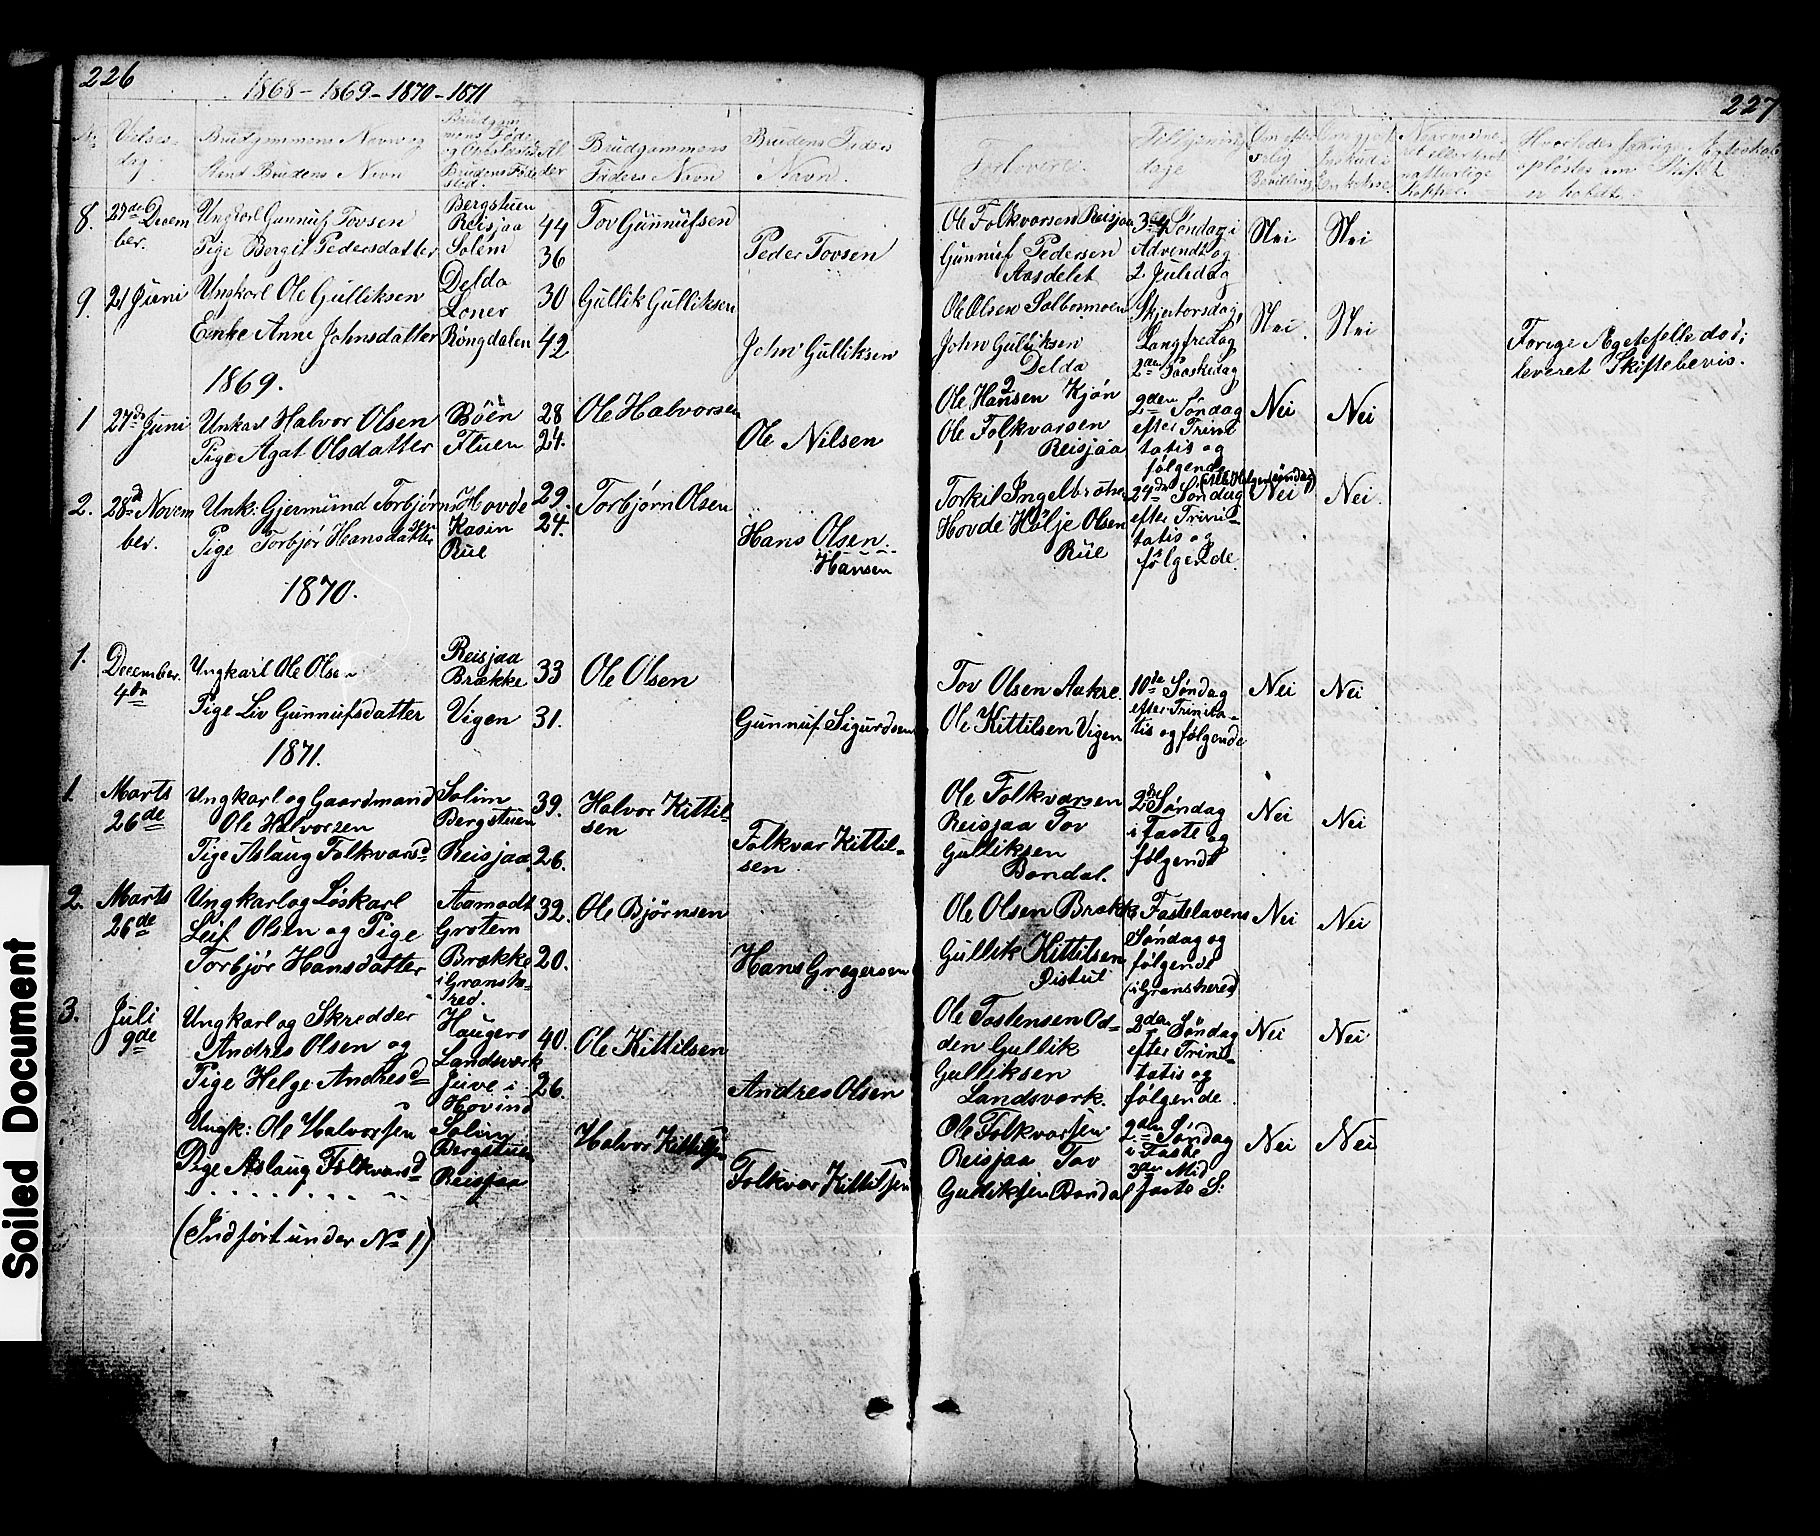 226
1868 - 1869 - 1870 - 1871
No
Vielses-
dag.
Brudgommens Navn og
Stand Brudens Navn
Brudgom
mens Føde
og Opholdssted
BrudensFøde
sted.
Al
der
Brudgommens
Faders Navn
Brudens Faders
Navn.
8.
27de Decem
ber.
Ungkarl Gunnuf Tovsen
Pige Borgit Pedersdatter
Bergstuen
Reisjaa
Solem
44
36
Tov Gunnufsen
Peder Tovsen
9.
21 Juni
Ungkarl Ole Gulliksen
Enke Anne Johnsdatter
Delda
Loner
Rongdalen
30
42
Gullik Gulliksen
John Gulliksen
1869.
1
27de Juni
Unkarl Halvor Olsen
Pige Agat Olsdatter
Böen
Fluen
28
24.
Ole Halvorsen
Ole Nilsen
2.
28de Novem
ber.
Unk: Gjermund Torbjørns
Pige Torbjør Hansdatter
Hovde
Kasin
Rue
29.
24.
Torbjørn Olsen
Hans Olsen
Hansen
1870.
1.
December
4de
Ungkarl Ole Olsen
Pige Liv Gunnufsdatter
Reisjaa
Brække
Vigen
33
31.
Ole Olsen
Gunnuf Sigurdsen
1871.
1
Marts
26de
Ungkarl og Gaardmand
Ole Halvorsen
Pige Aslaug Folkvarsd
Solim
Bergstuen
Reisjaa
39.
26.
Halvor Kittil-
sen
Folkvar Kittil-
sen.
2.
Marts
26de
Ungkarl og Løskarl
Leif Olsen og Pige
Torbjør Hansdatter
Aamodt
Grotem
Brække
i Gransh-
red.
32.
20.
Ole Bjørnsen
Hans Gregersen
3.
Juli
9de
Ungkarl og Skredder
Andres Olsen og
Pige Helge Andresd
Haugero
Landsverk
Juve i
Hovind
40.
26.
Ole Kittilsen
Andres Olsen
Ungk: Ole Halvorsen
Pige Aslaug Folkvarsd
Solim
Bergstuen
Reisjaa
Halvor Kittilsen
Folkvar Kittilsen
(Indført under No 1)
227
Forlovere
Tillysnings-
dage
Hvorledes forrige Ægteskab
opløstes om Skifte
er holdt.
Ole Folkvarsen Reisjaa
Gunnuf Pedersen
Aasdelet
3 4 Søndag i
Advendt og
2 Juledag
Nei
Nei
Ole Olsen Solbermoen
John Gulliksen
Delda
Skjertorsdag,
Langfredag
2den Paaskedag
Nei
Nei
Forige Ægtefelle død;
leveret Skiftebevis.
Ole Hansen Kjøn
2
Ole Folkvarsen
1 Reisjaa
2den Søndag
efter Trini
tatis og
følgende
Nei
Nei
Torkil Ingelbretsen
Hovde Hølje Olsen
Rue
(Alle Helgensöndag)
24de Søndag
efter Trini-
tatis og
følgende.
Nei
Nei.
Tov Olsen Aakre
Ole Kittilsen Vigen
10de Søndag
efter Trinita-
tis og følgende
Nei
Nei
Ole Folkvarsen
Reisjaa Tov
Gulliksen
Bondal.
2den Søndag
i Faste og
følgende
Nei
Nei
Ole Olsen Brække
Gullik Kittilsen
Distul
Fastelavens
Søndag og
følgende
(i Gransherred)
Nei
Nei
Ole Tostensen Od-
den Gullik
Gulliksen
Landsverk.
2den Søndag
efter Trini-
tatis og
følgende
Nei
Nei
Ole Folkvarsen
Reisjaa Tov
Gulliksen Bondal
2den Søndag
i Faste
3den Mid
faste S:
Nei
Nei
Soiled Document